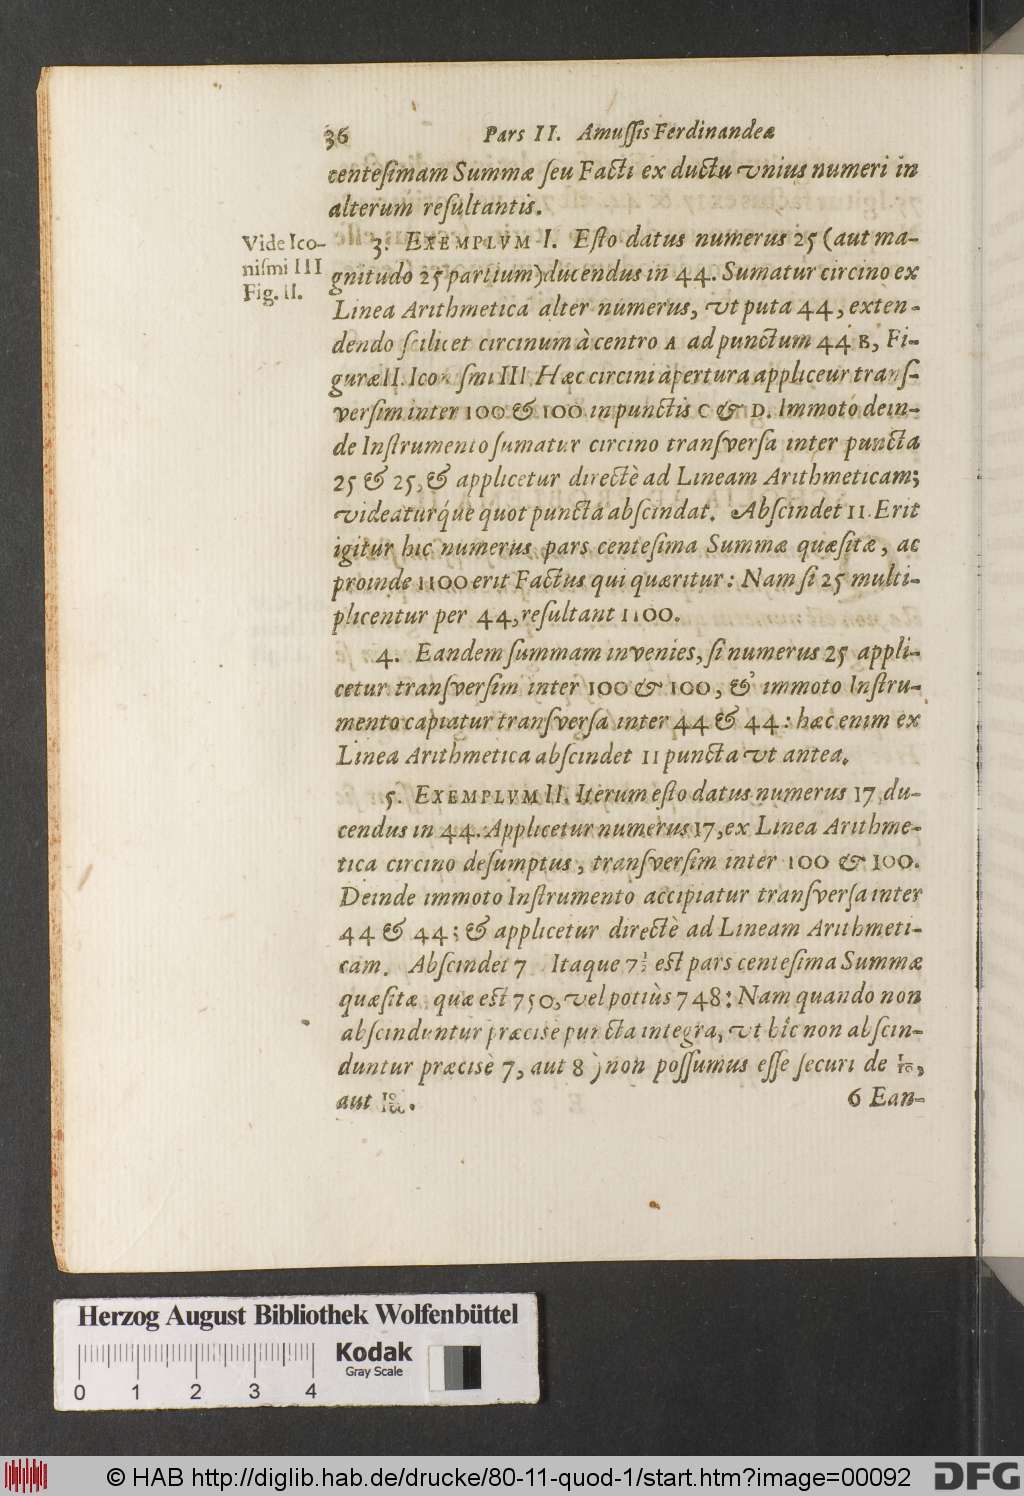 36 Pars II. Amuſſis Ferdinandeæ
centeſimam Summæ ſeu Facti ex ductu vnius numeri in
alterum reſultantis.
Vide Ico-
niſmi III
Fig. II.
3. EXEMPLVM I. Eſto datus numerus 25 (aut ma-
gnitudo 25 partium) ducendus in 44. Sumatur circino ex
Linea Arithmetica alter numerus, vt puta 44, exten-
dendo ſcilicet circinum à centro A ad punctum 44 B, Fi-
guræ II. Ico ſmi III. Hæc circini apertura appliceur tranſ-
verſim inter 100 & 100 in punctis C & D. Immoto dein-
de Inſtrumento ſumatur circino tranſverſa inter puncta
25 & 25, & applicetur directè ad Lineam Arithmeticam;
videaturq́ue quot puncta abſcindat. Abſcindet 11. Erit
igitur hic numerus pars centeſima Summæ quæſitæ, ac
proinde 1100 erit Factus qui quæritur: Nam ſi 25 multi-
plicentur per 44, reſultant 1100.
4. Eandem ſummam invenies, ſi numerus 25 appli-
cetur tranſverſim inter 100 & 100, & immoto Inſtru-
mento capiatur tranſverſa inter 44 & 44: hæc enim ex
Linea Arithmetica abſcindet 11 puncta vt antea.
5. EXEMPLVM II. Iterum eſto datus numerus 17 du-
cendus in 44. Applicetur numerus 17, ex Linea Arithme-
tica circino deſumptus, tranſverſim inter 100 & 100.
Deinde immoto Inſtrumento accipiatur tranſverſa inter
44 & 44; & applicetur directè ad Lineam Arithmeti-
cam. Abſcindet 7 Itaque 7 1/2 eſt pars centeſima Summæ
quæſitæ quæ eſt 750, vel potiùs 748: Nam quando non
abſcinduntur præciſè puncta integra, vt hîc non abſcin-
duntur præcisè 7, aut 8, non poſſumus eſſe ſecuri de 1/10,
aut 10/100.
6 Ean-
Herzog August Bibliothek Wolfenbüttel
Kodak
Gray Scale
0 1 2 3 4
© HAB http://diglib.hab.de/drucke/80-11-quod-1/start.htm?image=00092
DFG